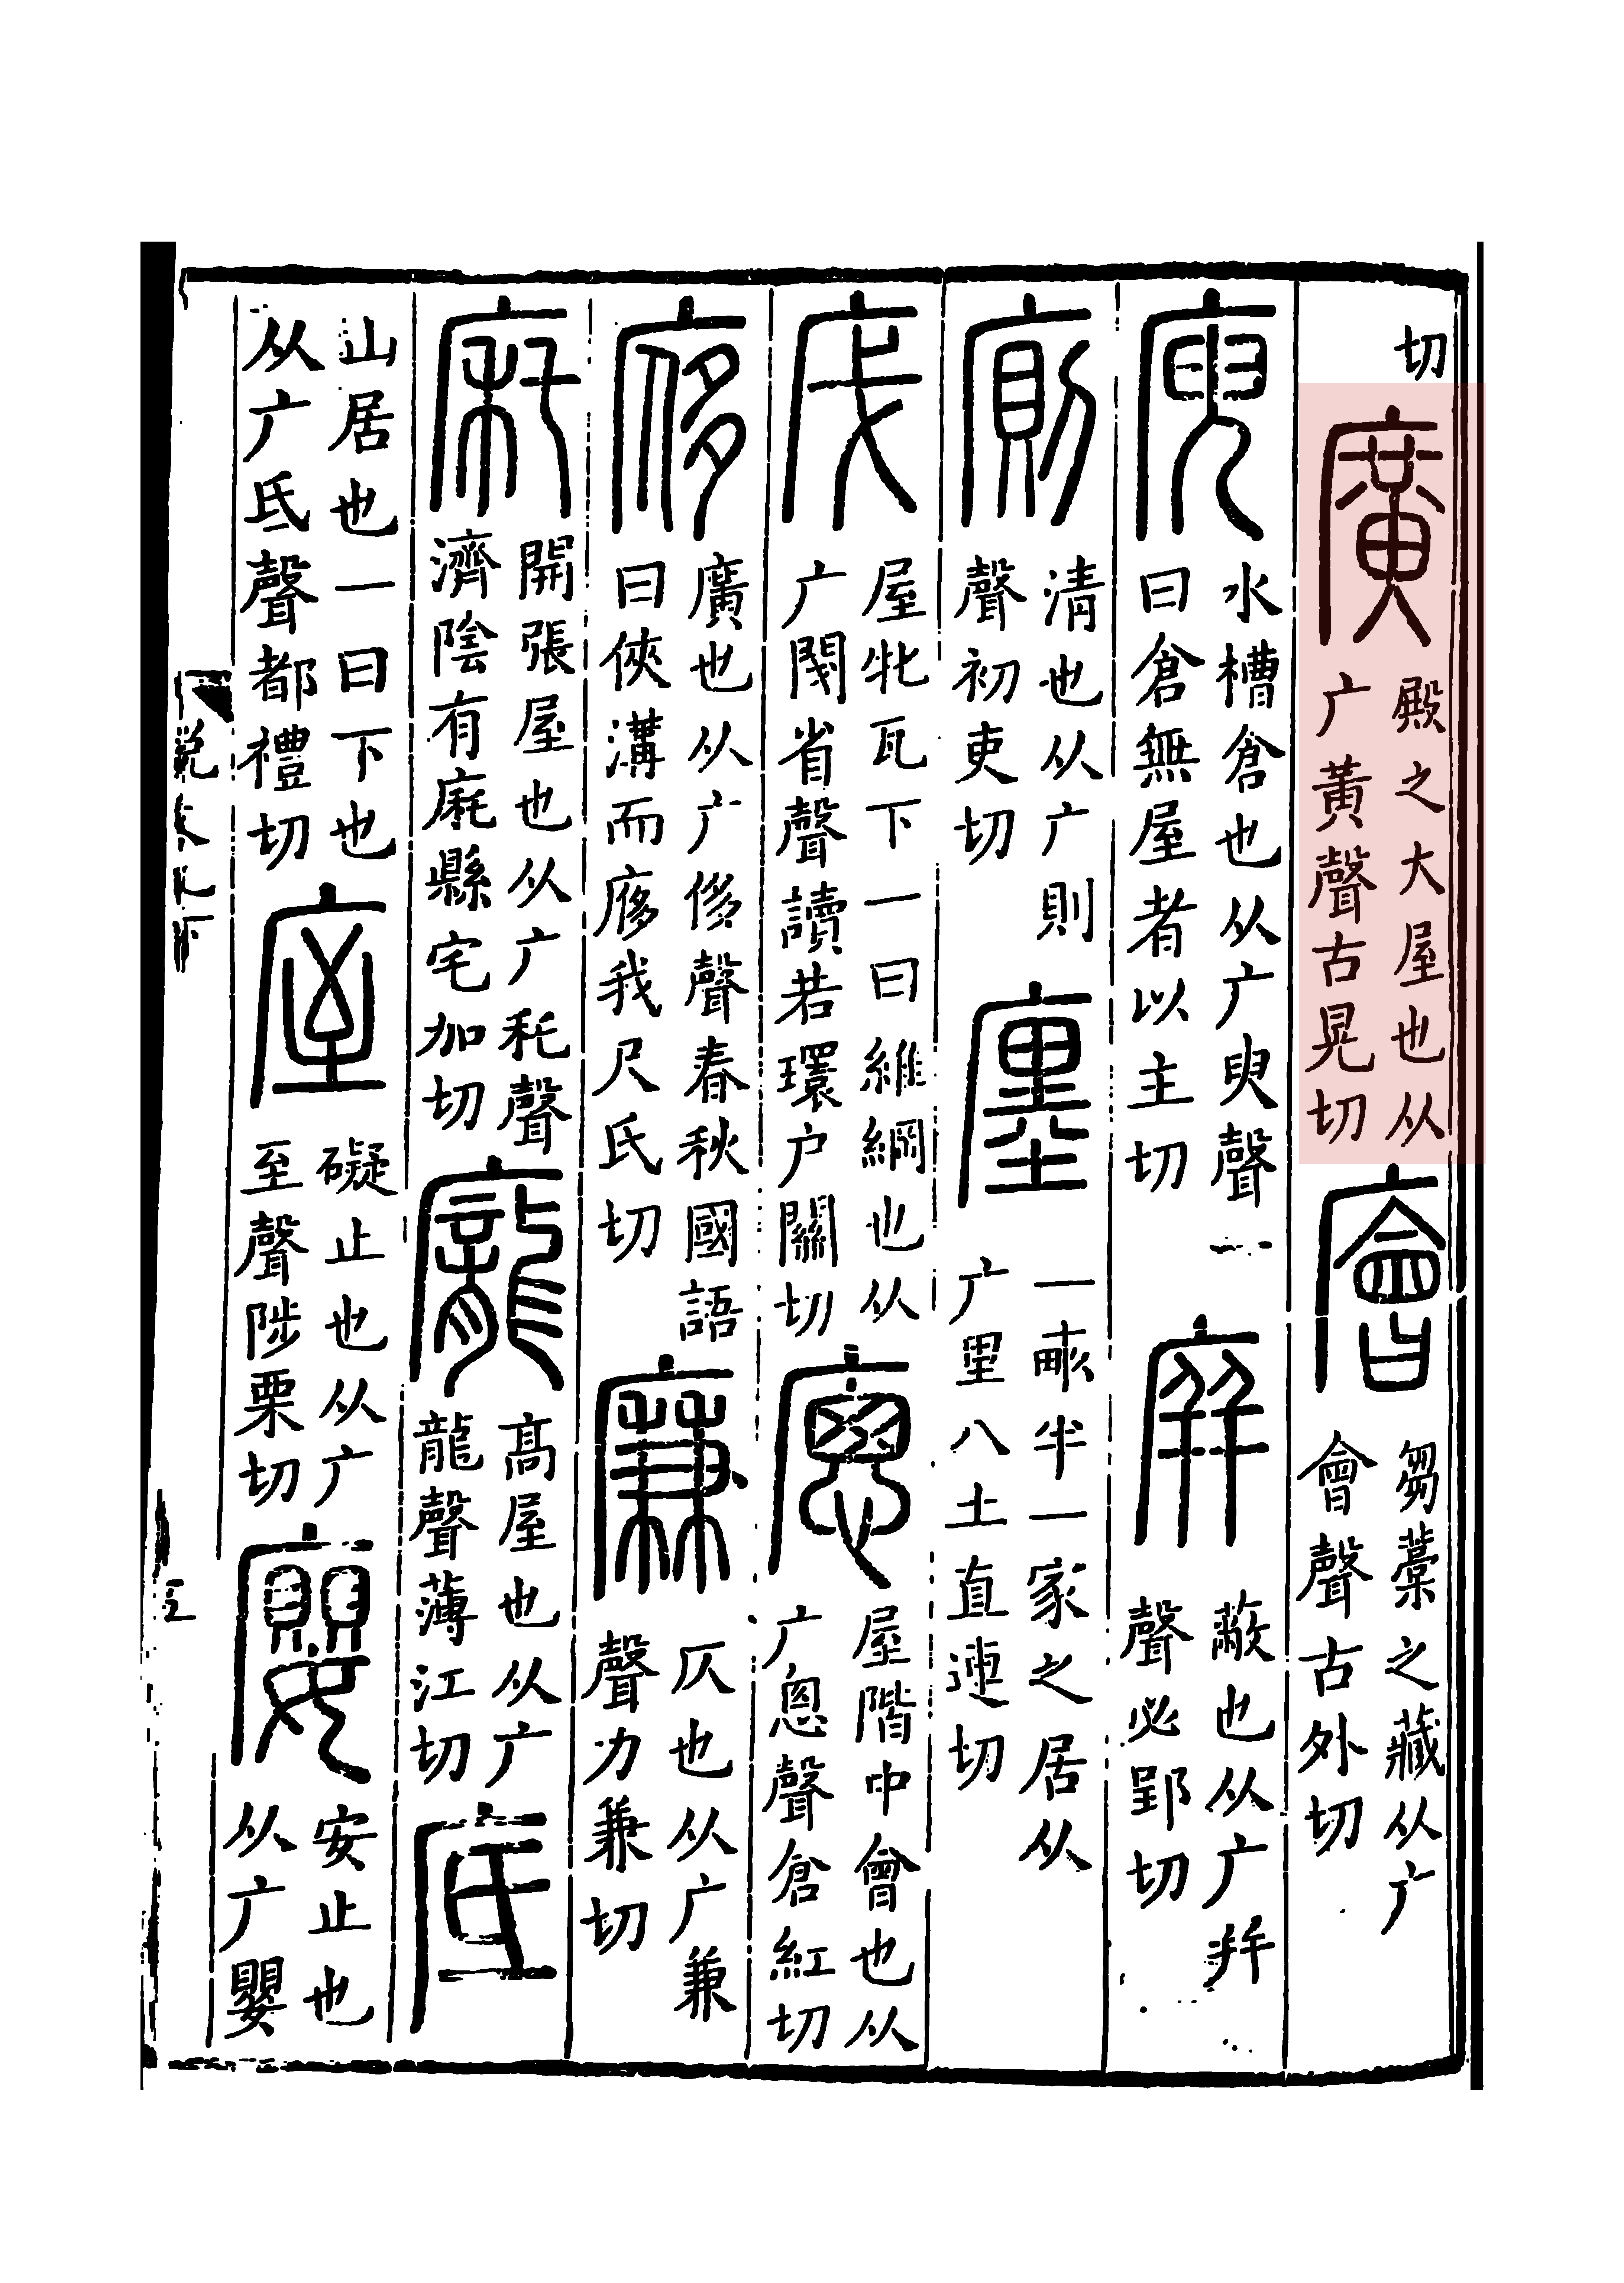 切
廣
殿之大屋也从
广黃聲古晃切
廥
芻藁之藏从广
會聲古外切
庾
水槽倉也从广臾聲一
曰倉無屋者以主切
庰
蔽也从广并
聲必郢切
廁
清也从广則
聲初吏切
廛
一畝半一家之居从
广里八土直連切
庣
屋牝瓦下一曰維綱也从
广閺省聲讀若環户關切
廮
屋階中會也从
广悤聲倉紅切
廖
廣也从广侈聲春秋國語
曰俠溝而廖我尺氏切
廉
仄也从广兼
聲力兼切
庌
開張屋也从广秅聲
濟陰有庌縣宅加切
龐
高屋也从广
龍聲薄江切
底
山居也一曰下也
从广氐聲都禮切
庢
礙止也从广
至聲陟栗切
廮
安止也
从广嬰